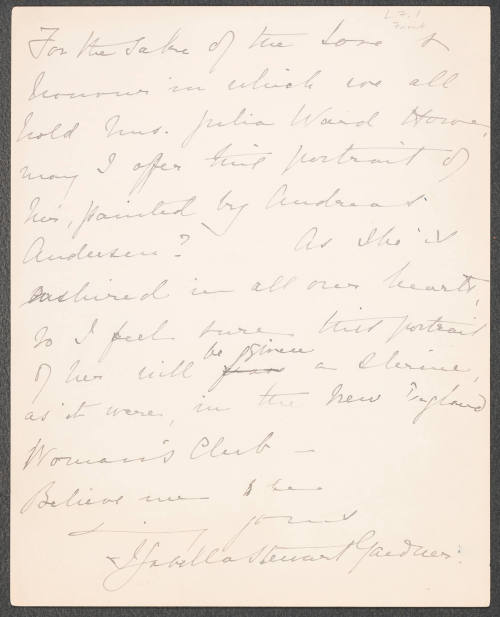 L.F.1
Front
For the sake of the love &
honour in which we all
hold Mrs. Julia Ward Howe,
may I offer this portrait of
her, painted by Andreas
Andersen? As she is
enshrined in all our hearts,
so I feel sure this portrait
of her will be given a shrine,
as it were, in the New England
Woman's Club —
Believe me to be
yours
Isabella Stewart Gardner.